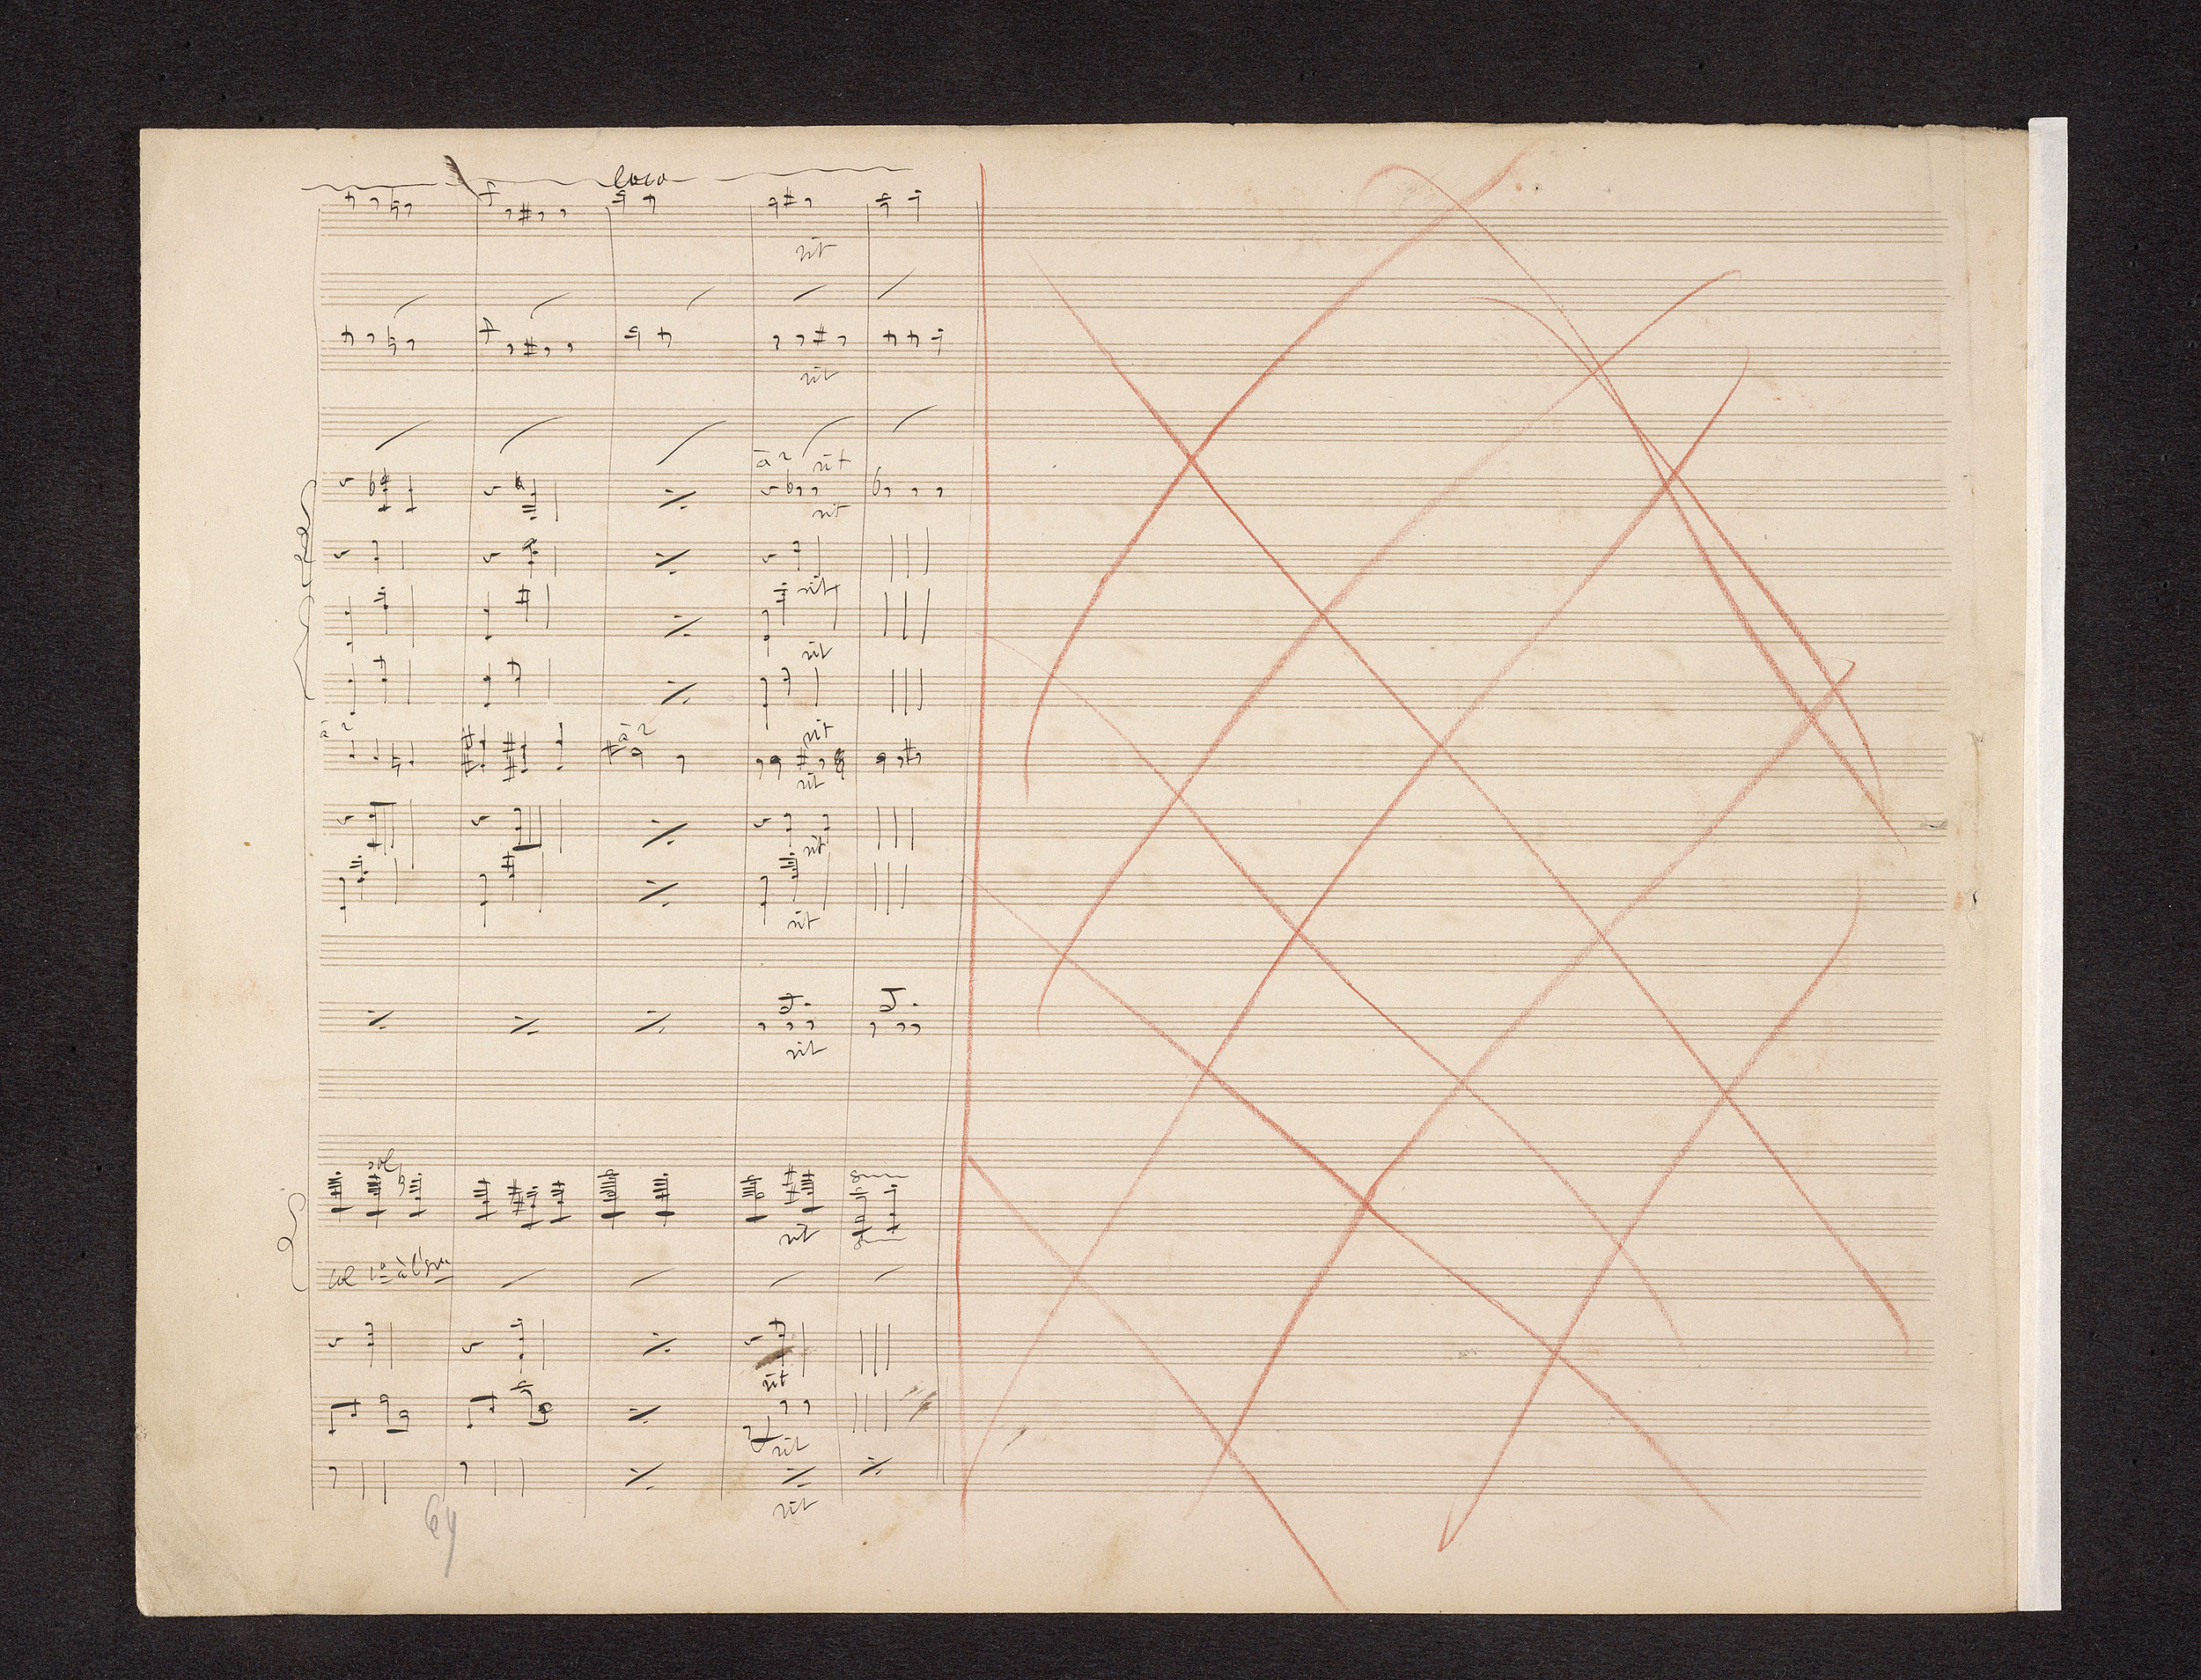 loco
rit
rit
à 2 rit
rit
rit
rit
à 2
à 2 rit
rit
rit
rit
rit
8va
rit
col 1º à l'8va
rit
rit
rit
64